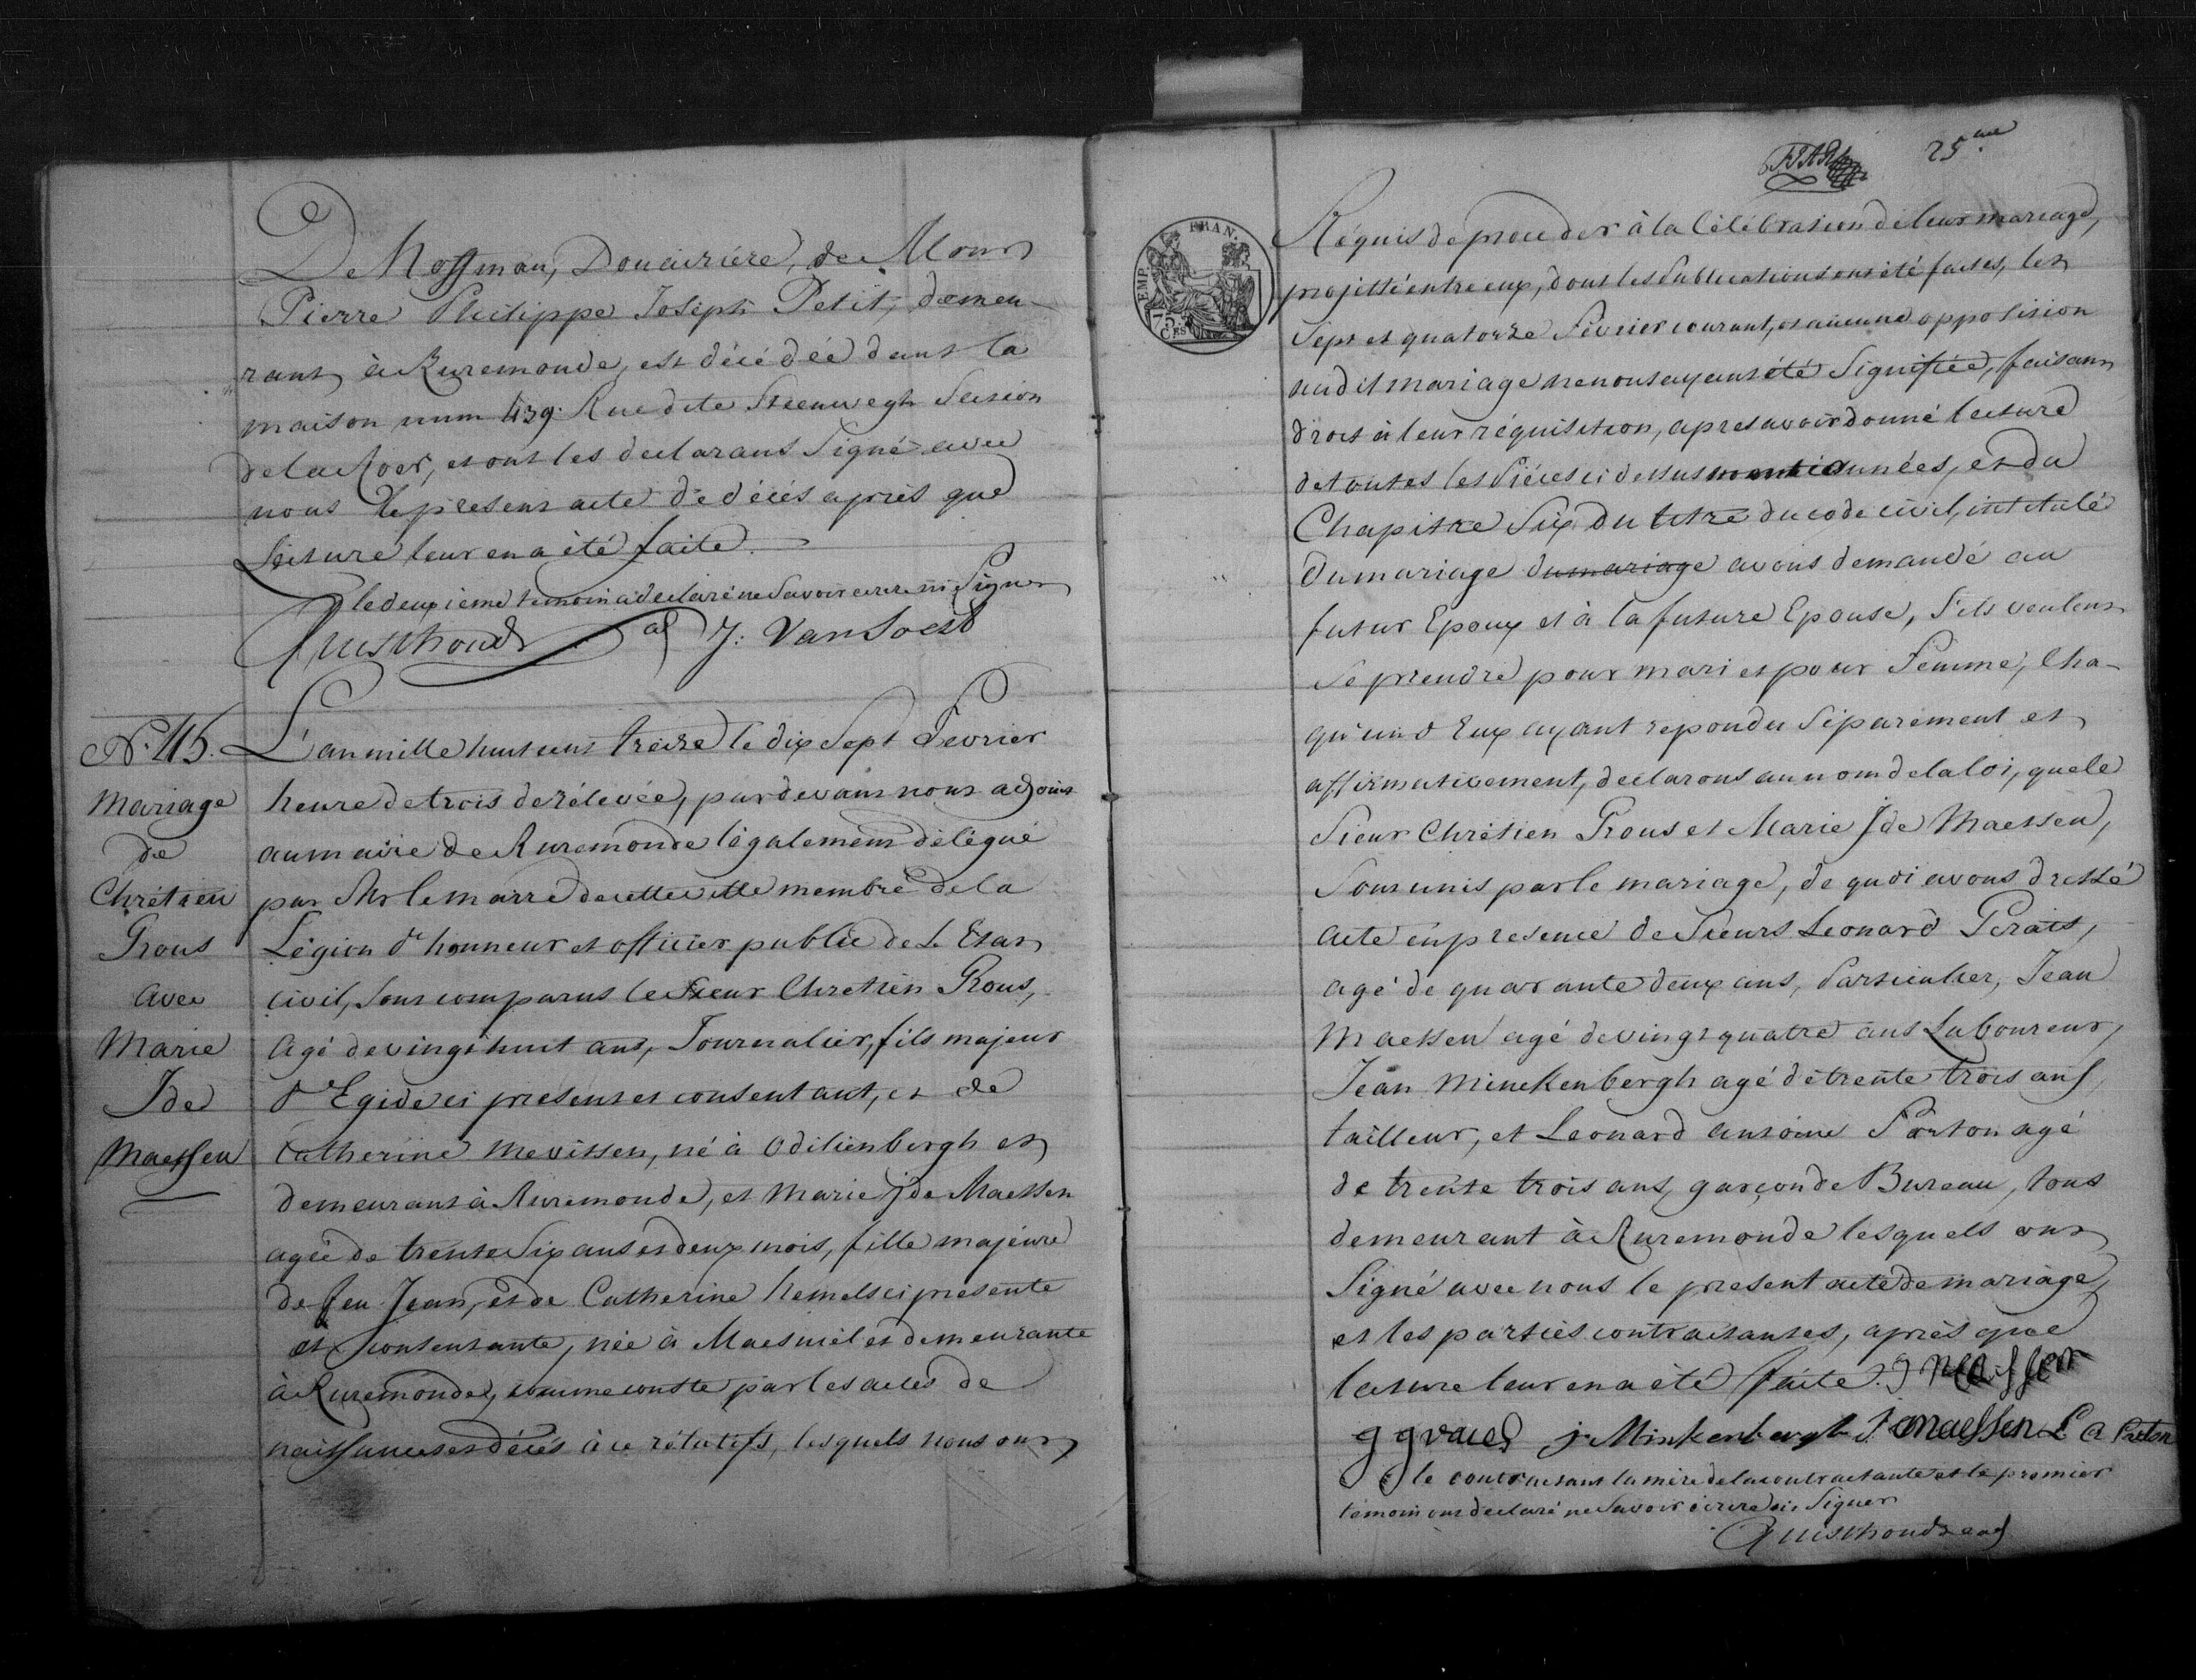 De Hoffman, Douairiére, de Monr
Pierre Philippe Joseph Petit, demeu-
rant à Ruremonde, est décédée dans la
maison num 439. Rue dite Steenwegh Section
de la Roer, et ont les declarans Signé avec
nous le present acte de décés après que
Lecture leur en a été faite.
le deuxieme temoin a declaré ne Savoir ecrire ni Signer
Quisthoudt ad J: Van Soest
N.° 45. L'an mille huit cens treize le dix Sept Fevrier
Mariage
de
Chrétien
Prous
avec
Marie
Ide
Maessen
heure de trois de rélevée, pardevant nous adjoint
au maire de Ruremonde légalement délégué
par Mr le maire de cette ville membre de la
Légion d'honneur et officier public de L'Etat
civil, Sont comparus le Sieur Chretien Prous,
agé de vingt huit ans, Journalier, fils majeur
d'Egide ci présent et consentant, et de
Catherine Mevissen, né à Odilienbergh et
demeurant à Ruremonde, et Marie Ide Maessen
agée de trente Six ans et deux mois, fille majeure
de feu Jean, et de Catherine hemels ci présente
et Consentante, née à Maesniel et demeurante
à Ruremonde, comme conste par les actes de
naissances et décés à ce rélatifs, lesquels nous ont
25.me
EMP. FRAN.
75 Crs
Réquis de proceder à la Célébration de leur mariage,
projetté entre eux, dont les Publications ont été faites, les
Sept et quatorze Février courant, et aucune opposition
audit mariage ne nous ayant été Signifiée, faisant
droit à leur réquisition, apres avoir donné lecture
de toutes les Piéces ci dessus mentionnées, et du
Chapitre Six du titre du code civil, intitulé
du mariage du mariage avons demandé au
futur Epoux et à la future Epouse, S'ils veulent
Se prendre pour mari et pour Femme, Cha-
qu'un d'Eux ayant repondu Séparément et
affirmativement, declarons au nom de la loi, que le
Sieur Chrétien Prous et Marie Ide Maessen,
Sont unis par le mariage, de quoi avons dressé
acte en presence de Sieurs Leonard Peraits,
agé de quarante deux ans, Particulier, Jean
Maessen agé de vingt quatre ans Laboureur,
Jean Minckenbergh agé de trente trois ans,
tailleur, et Leonard antoine Parton agé
de trente trois ans, garçon de Bureau, tous
demeurant à Ruremonde lesquels ont
Signé avec nous le present acte de mariage,
et les parties contractantes, après que
lecture leur en a été faite.
j Minkenbergh J Maessen L A Parton
le contractant la mére de la contractante et le premier
témoin ont declaré ne Savoir écrire ni Signer
Quisthoudt ad